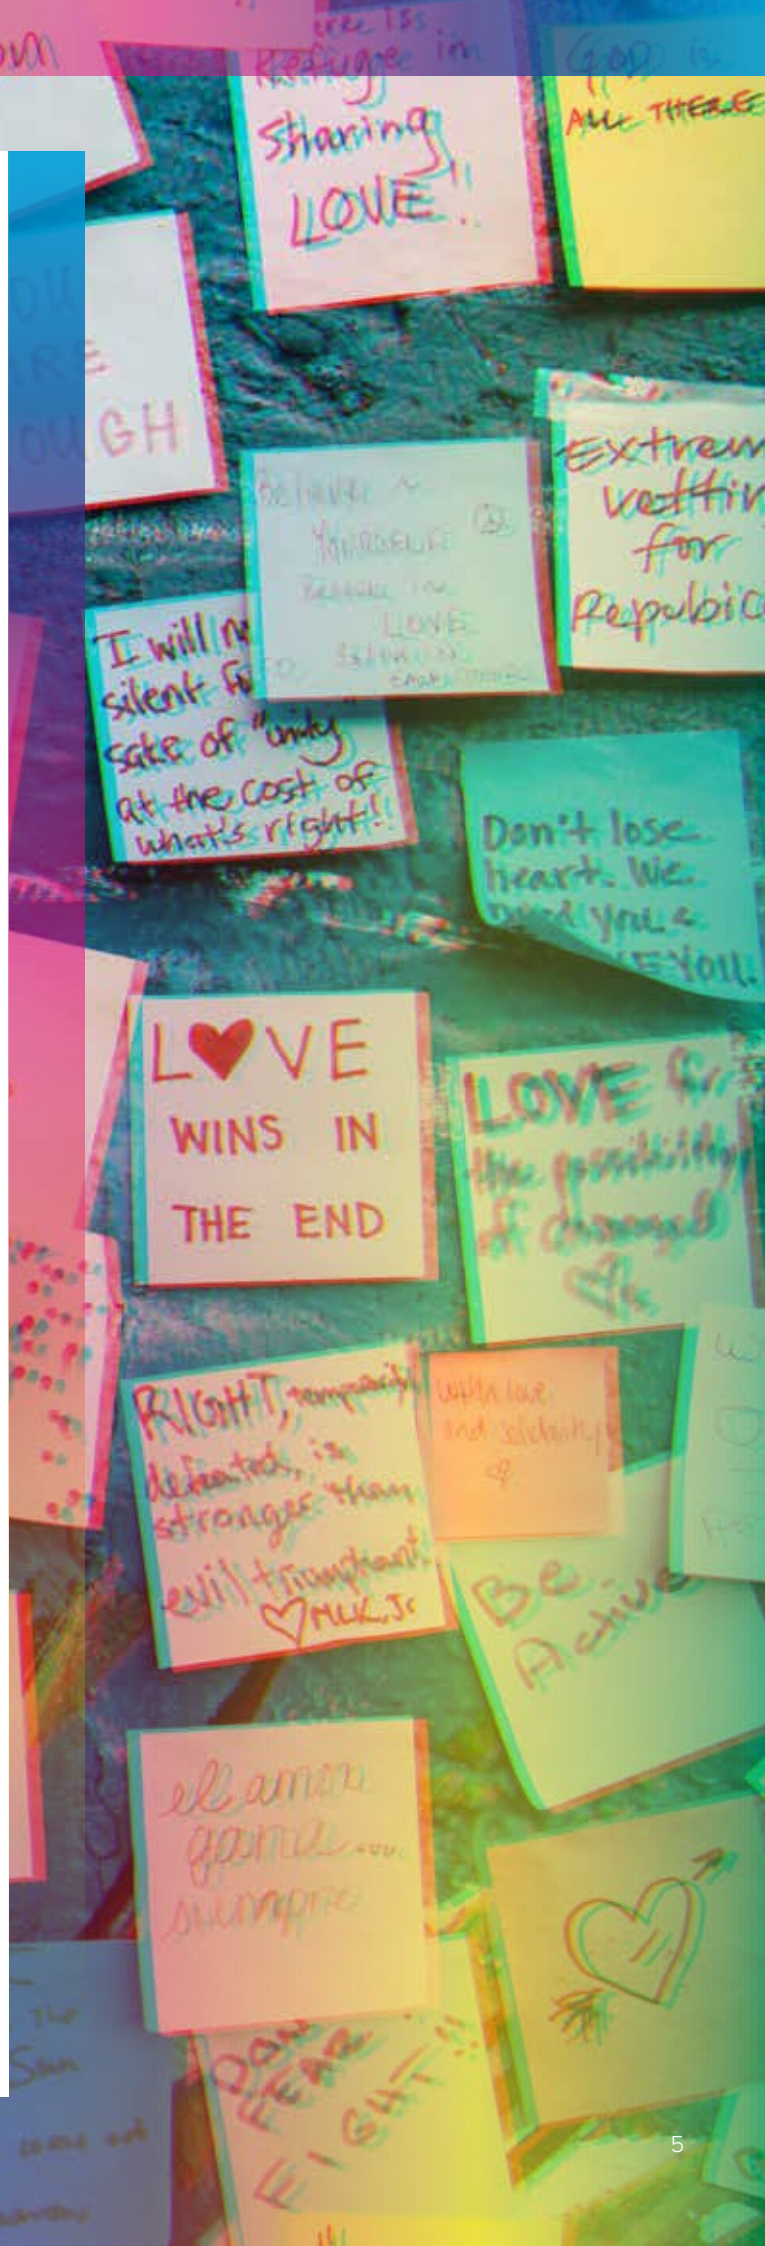 ere is
Refugee in
Sharing
LOVE!!
GOD is
ALL THERE
OU
RE
OUGH
BELIEVE IN
YOURSELF
BELIEVE IN
LOVE
Extrem
vettin
for
Repubic
I will n
silent fo
sake of "unity"
at the cost of
what's right!!
Don't lose
heart. We
need you &
VE YOU.
LOVE
WINS IN
THE END
LOVE for
the possibility
of
RIGHT, temporarily
defeated, is
stronger than
evil triumphant!
MLK, Jr
with love
and solidarity
Be
Active
el amor
gana....
siempre
The
Sun
come out
DON
FEAR
FIGHT!!
5